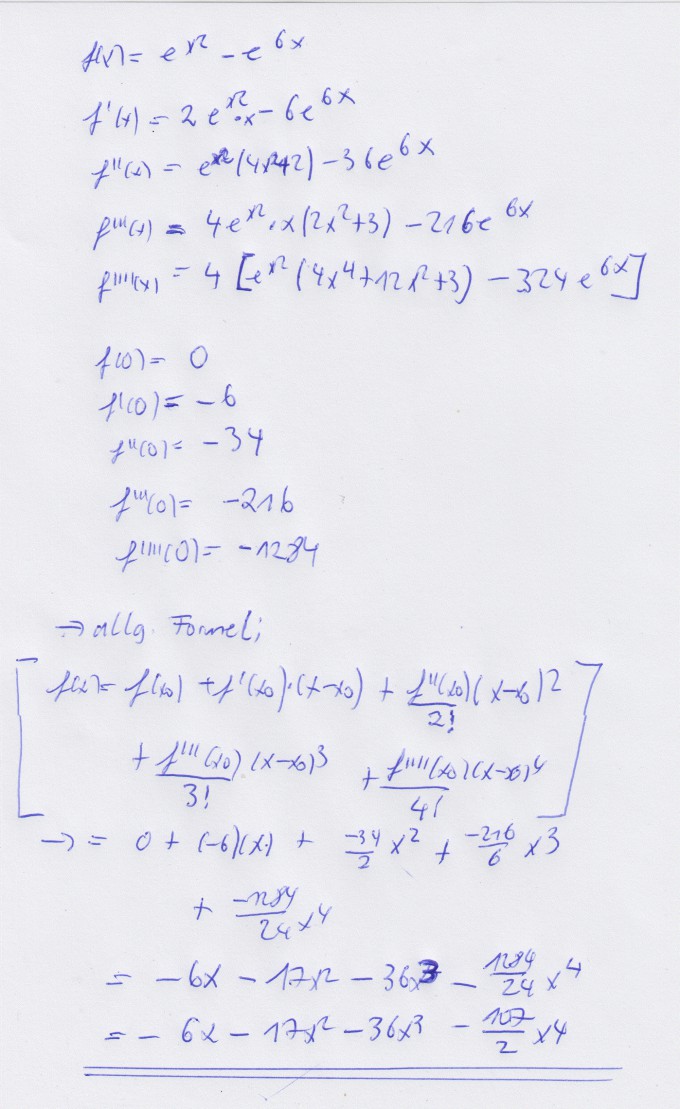 f(x) = e^x² - e^6x
f'(x) = 2e^x²·x - 6e^6x
f''(x) = e^x²(4x²+2) - 36e^6x
f'''(x) = 4e^x²·x(2x²+3) - 216e^6x
f''''(x) = 4[e^x²(4x⁴+12x²+3) - 324e^6x]
f(0) = 0
f'(0) = -6
f''(0) = -34
f'''(0) = -216
f''''(0) = -1284
→ allg. Formel:
[f(x) = f(x₀) + f'(x₀)·(x-x₀) + f''(x₀)/2! (x-x₀)²
+ f'''(x₀)/3! (x-x₀)³ + f''''(x₀)(x-x₀)⁴/4!]
→ = 0 + (-6)(x) + -34/2 x² + -216/6 x³
+ -1284/24 x⁴
= -6x - 17x² - 36x³ - 1284/24 x⁴
= -6x - 17x² - 36x³ - 107/2 x⁴